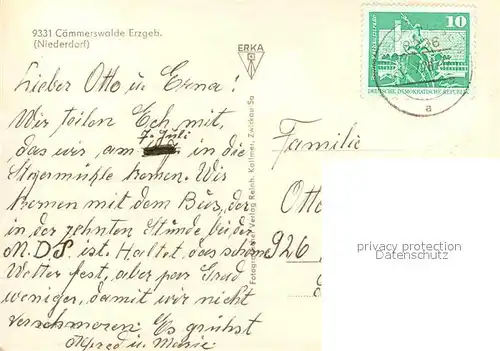 9331 Cämmerswalde Erzgeb.
(Niederdorf)
ERKA
10
DEUTSCHE DEMOKRATISCHE REPUBLIK
a
Lieber Otto u. Erna!
Wir teilen Ech mit,
7. Juli
das wir am in die
Steyermühle komen. Wir
komen mit dem Bus, der
in der zehnten Stunde bei der
M.D.S. ist. Haltet das schöne
Wetter fest, aber par Grad
weniger, damit wir nicht
verschmoren. Es grühst
Alfred u. Marie
Fotografischer Verlag Reinh. Kallmer, Zwickau Sa
Familie
Otto
926
privacy protection
www.ansichtskarten-center.de